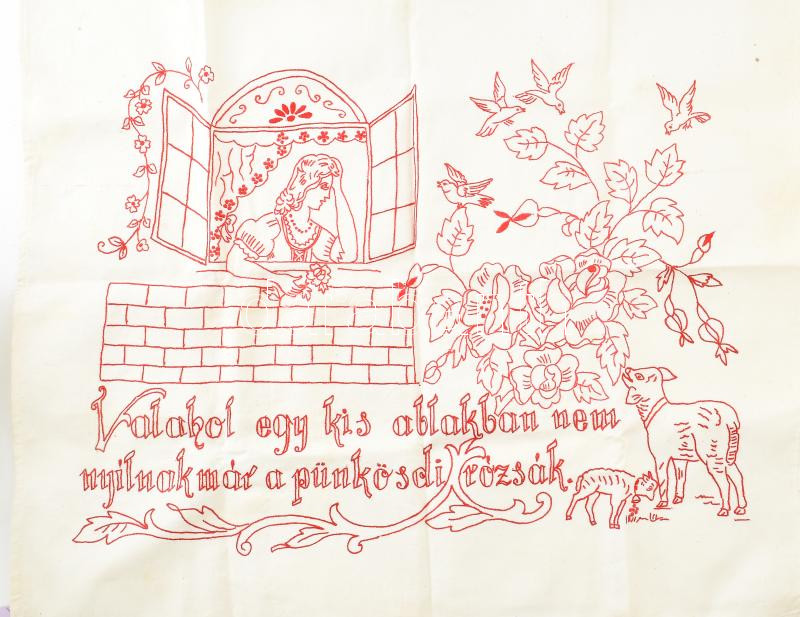 Valahol egy kis ablakban nem
nyílnak már a pünkösdi rózsák.